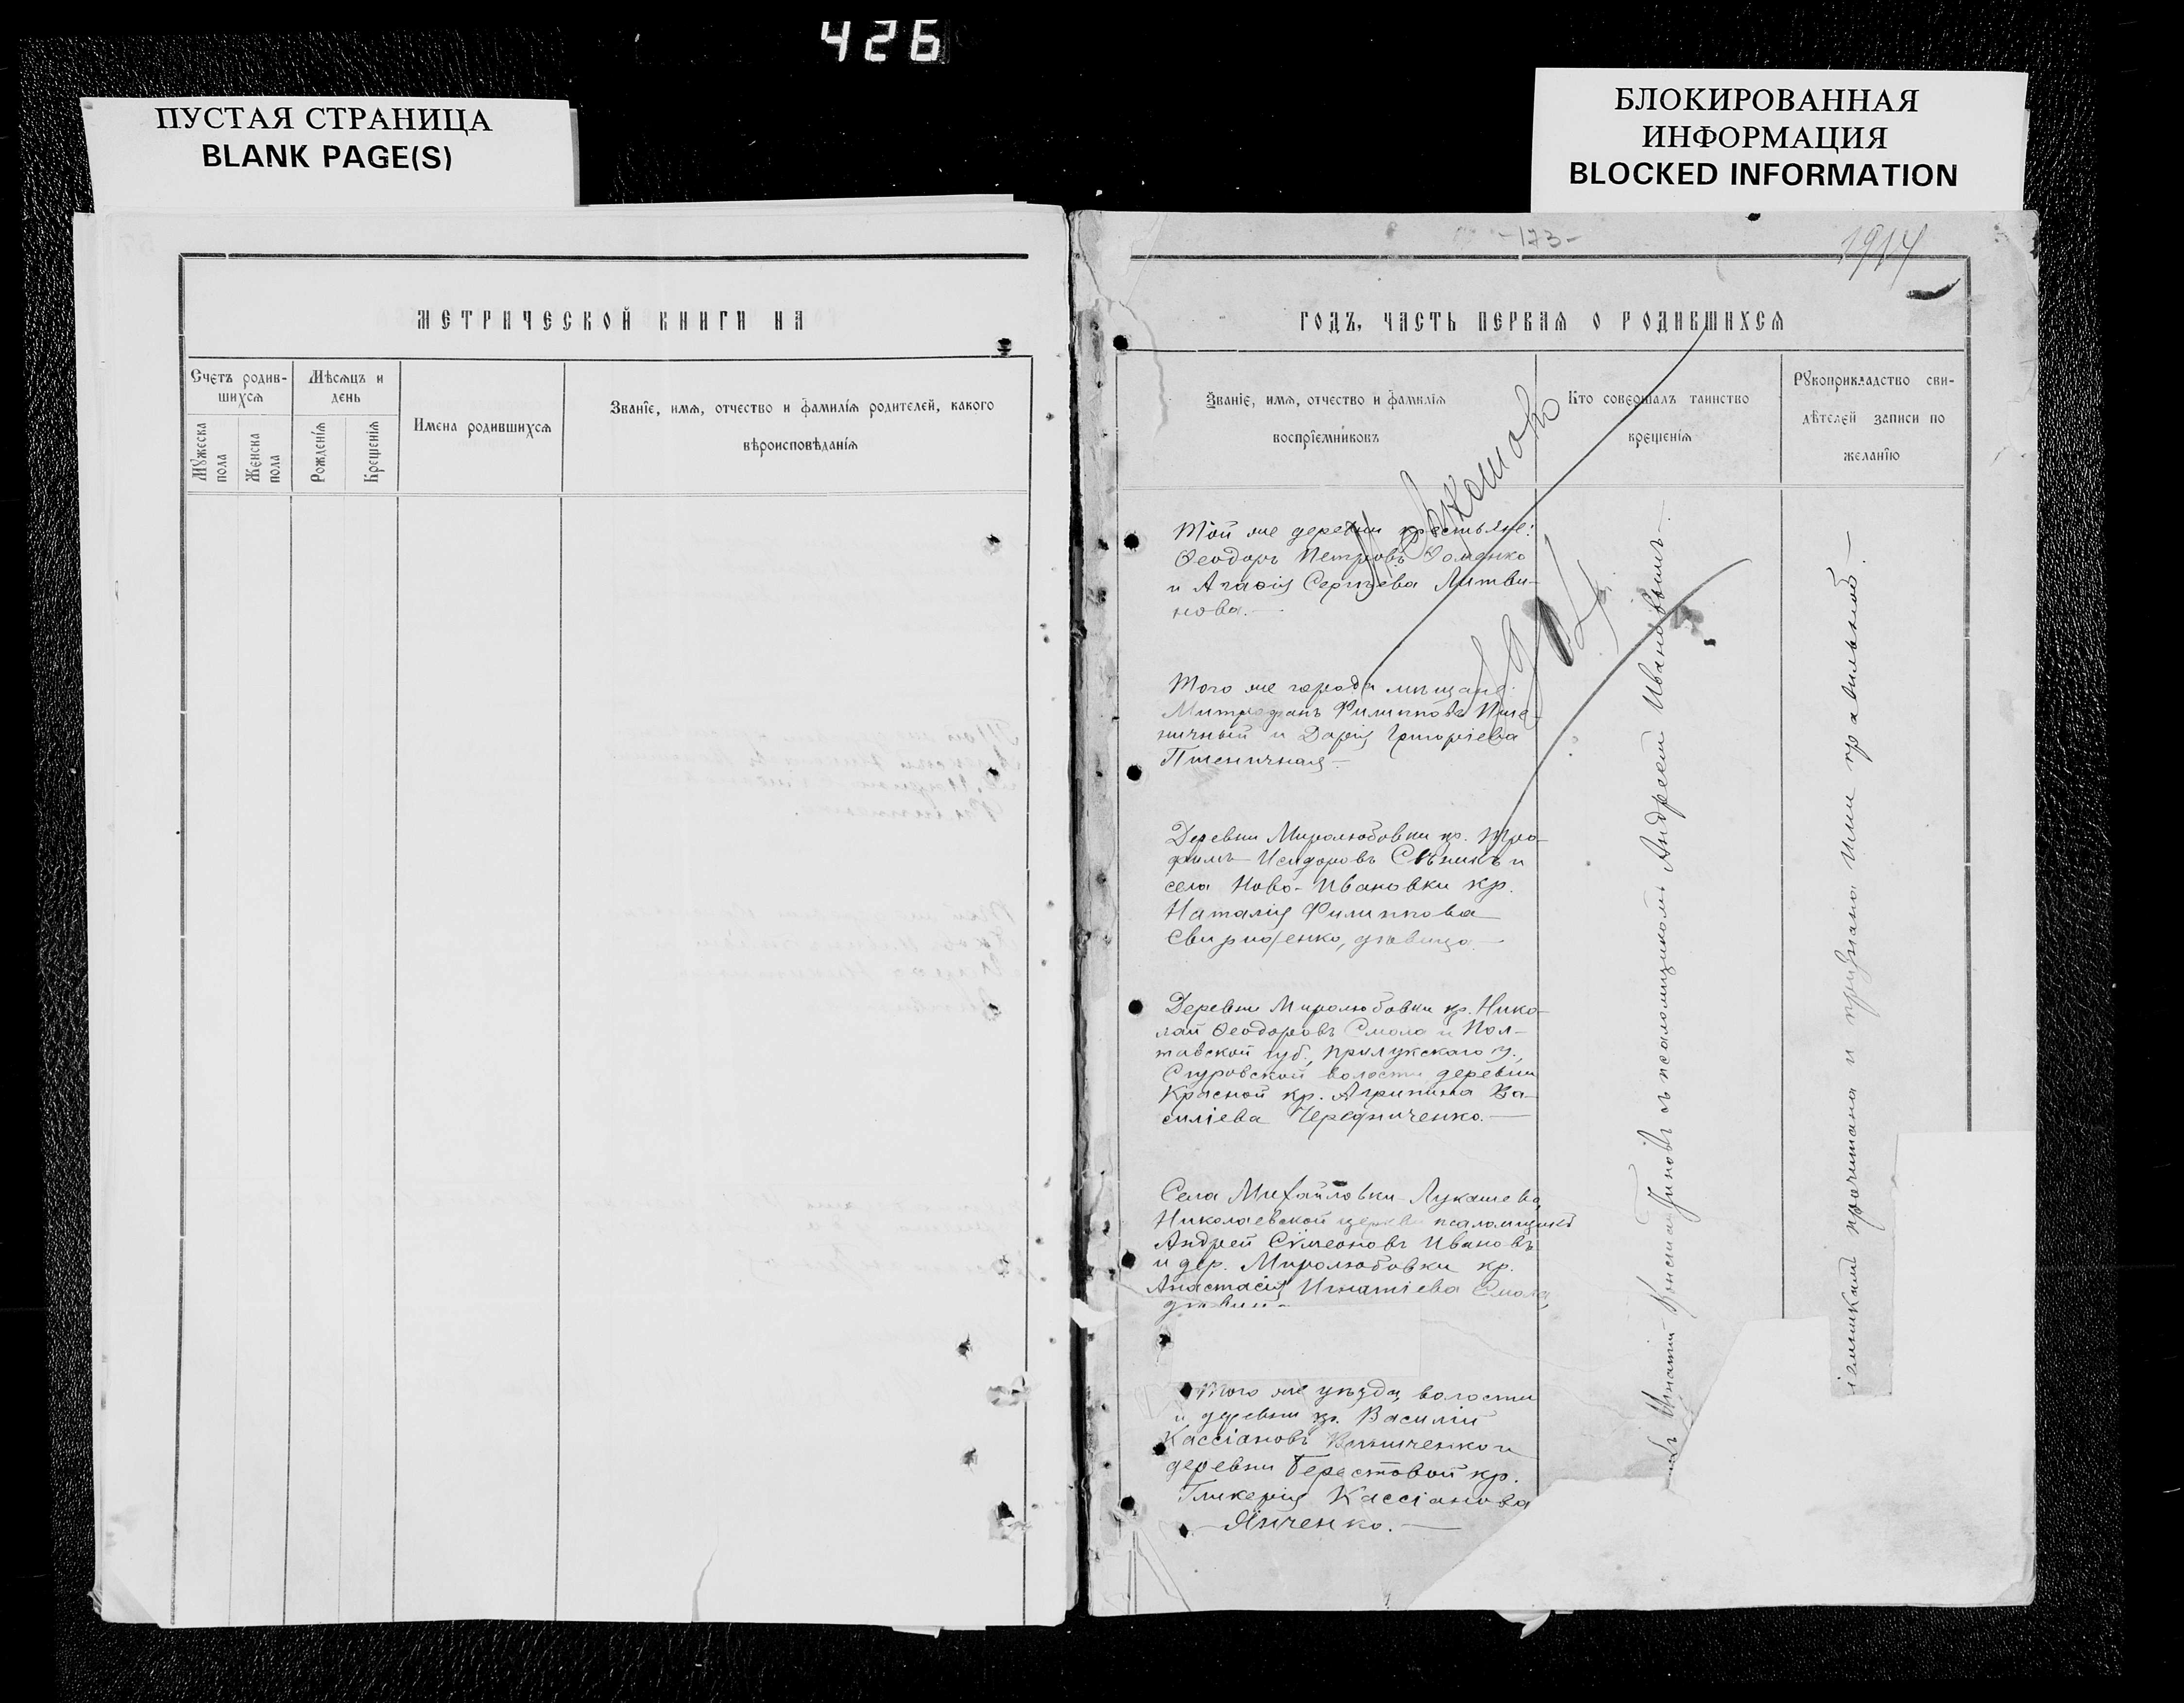 426
ПУСТАЯ СТРАНИЦА
BLANK PAGE(S)
БЛОКИРОВАННАЯ
ИНФОРМАЦИЯ
BLOCKED INFORMATION
МЕТРИЧЕСКОЙ КНИГИ НА
Счетъ родив-
шихся
Мѣсяцъ и
день
Мужеска
пола
Женска
пола
Рожденія
Крещенія
Имена родившихся
Званіе, имя, отчество и фамилія родителей, какого
вѣроисповѣданія
-173-
1914
ГОДЪ, ЧАСТЬ ПЕРВАЯ О РОДИВШИХСЯ
Званіе, имя, отчество и фамилія
воспріемниковъ
Кто совершалъ таинство
крещенія
Рукоприкладство сви-
дѣтелей записи по
желанію
Той же деревни крестьяне:
Ѳеодоръ Петровъ Ѳоменко
и Агаѳія Сергѣева Литви-
нова.
1914
Того же города мѣщане:
Митрофанъ Филипповъ Пше-
ничный и Дарія Григоріева
Пшеничная
Деревни Миролюбовки кр. Тро-
фимъ Исидоровъ и
села Ново-Ивановки кр.
Наталія Филиппова
дѣвица.
Деревни Миролюбовки кр. Нико-
лай Ѳеодоровъ Смола и Пол-
тавской губ., Прилукскаго у.,
волости деревни
Красной кр. Агрипина Ва-
силіева Чередниченко.
Села Михайловки-Лукашева
Николаевской церкви псаломщикъ
Андрей Сѵмеоновъ Ивановъ
и дер. Миролюбовки кр.
Анастасія Игнатіева Смола,
Того же уѣзда, волости
и деревни кр. Василій
Кассіановъ и
деревни Берестовой кр.
Гликерія Кассіанова
Янченко.
Игнатій съ псаломщикомъ Андреемъ Ивановымъ
прочитана и признана ими правильной.